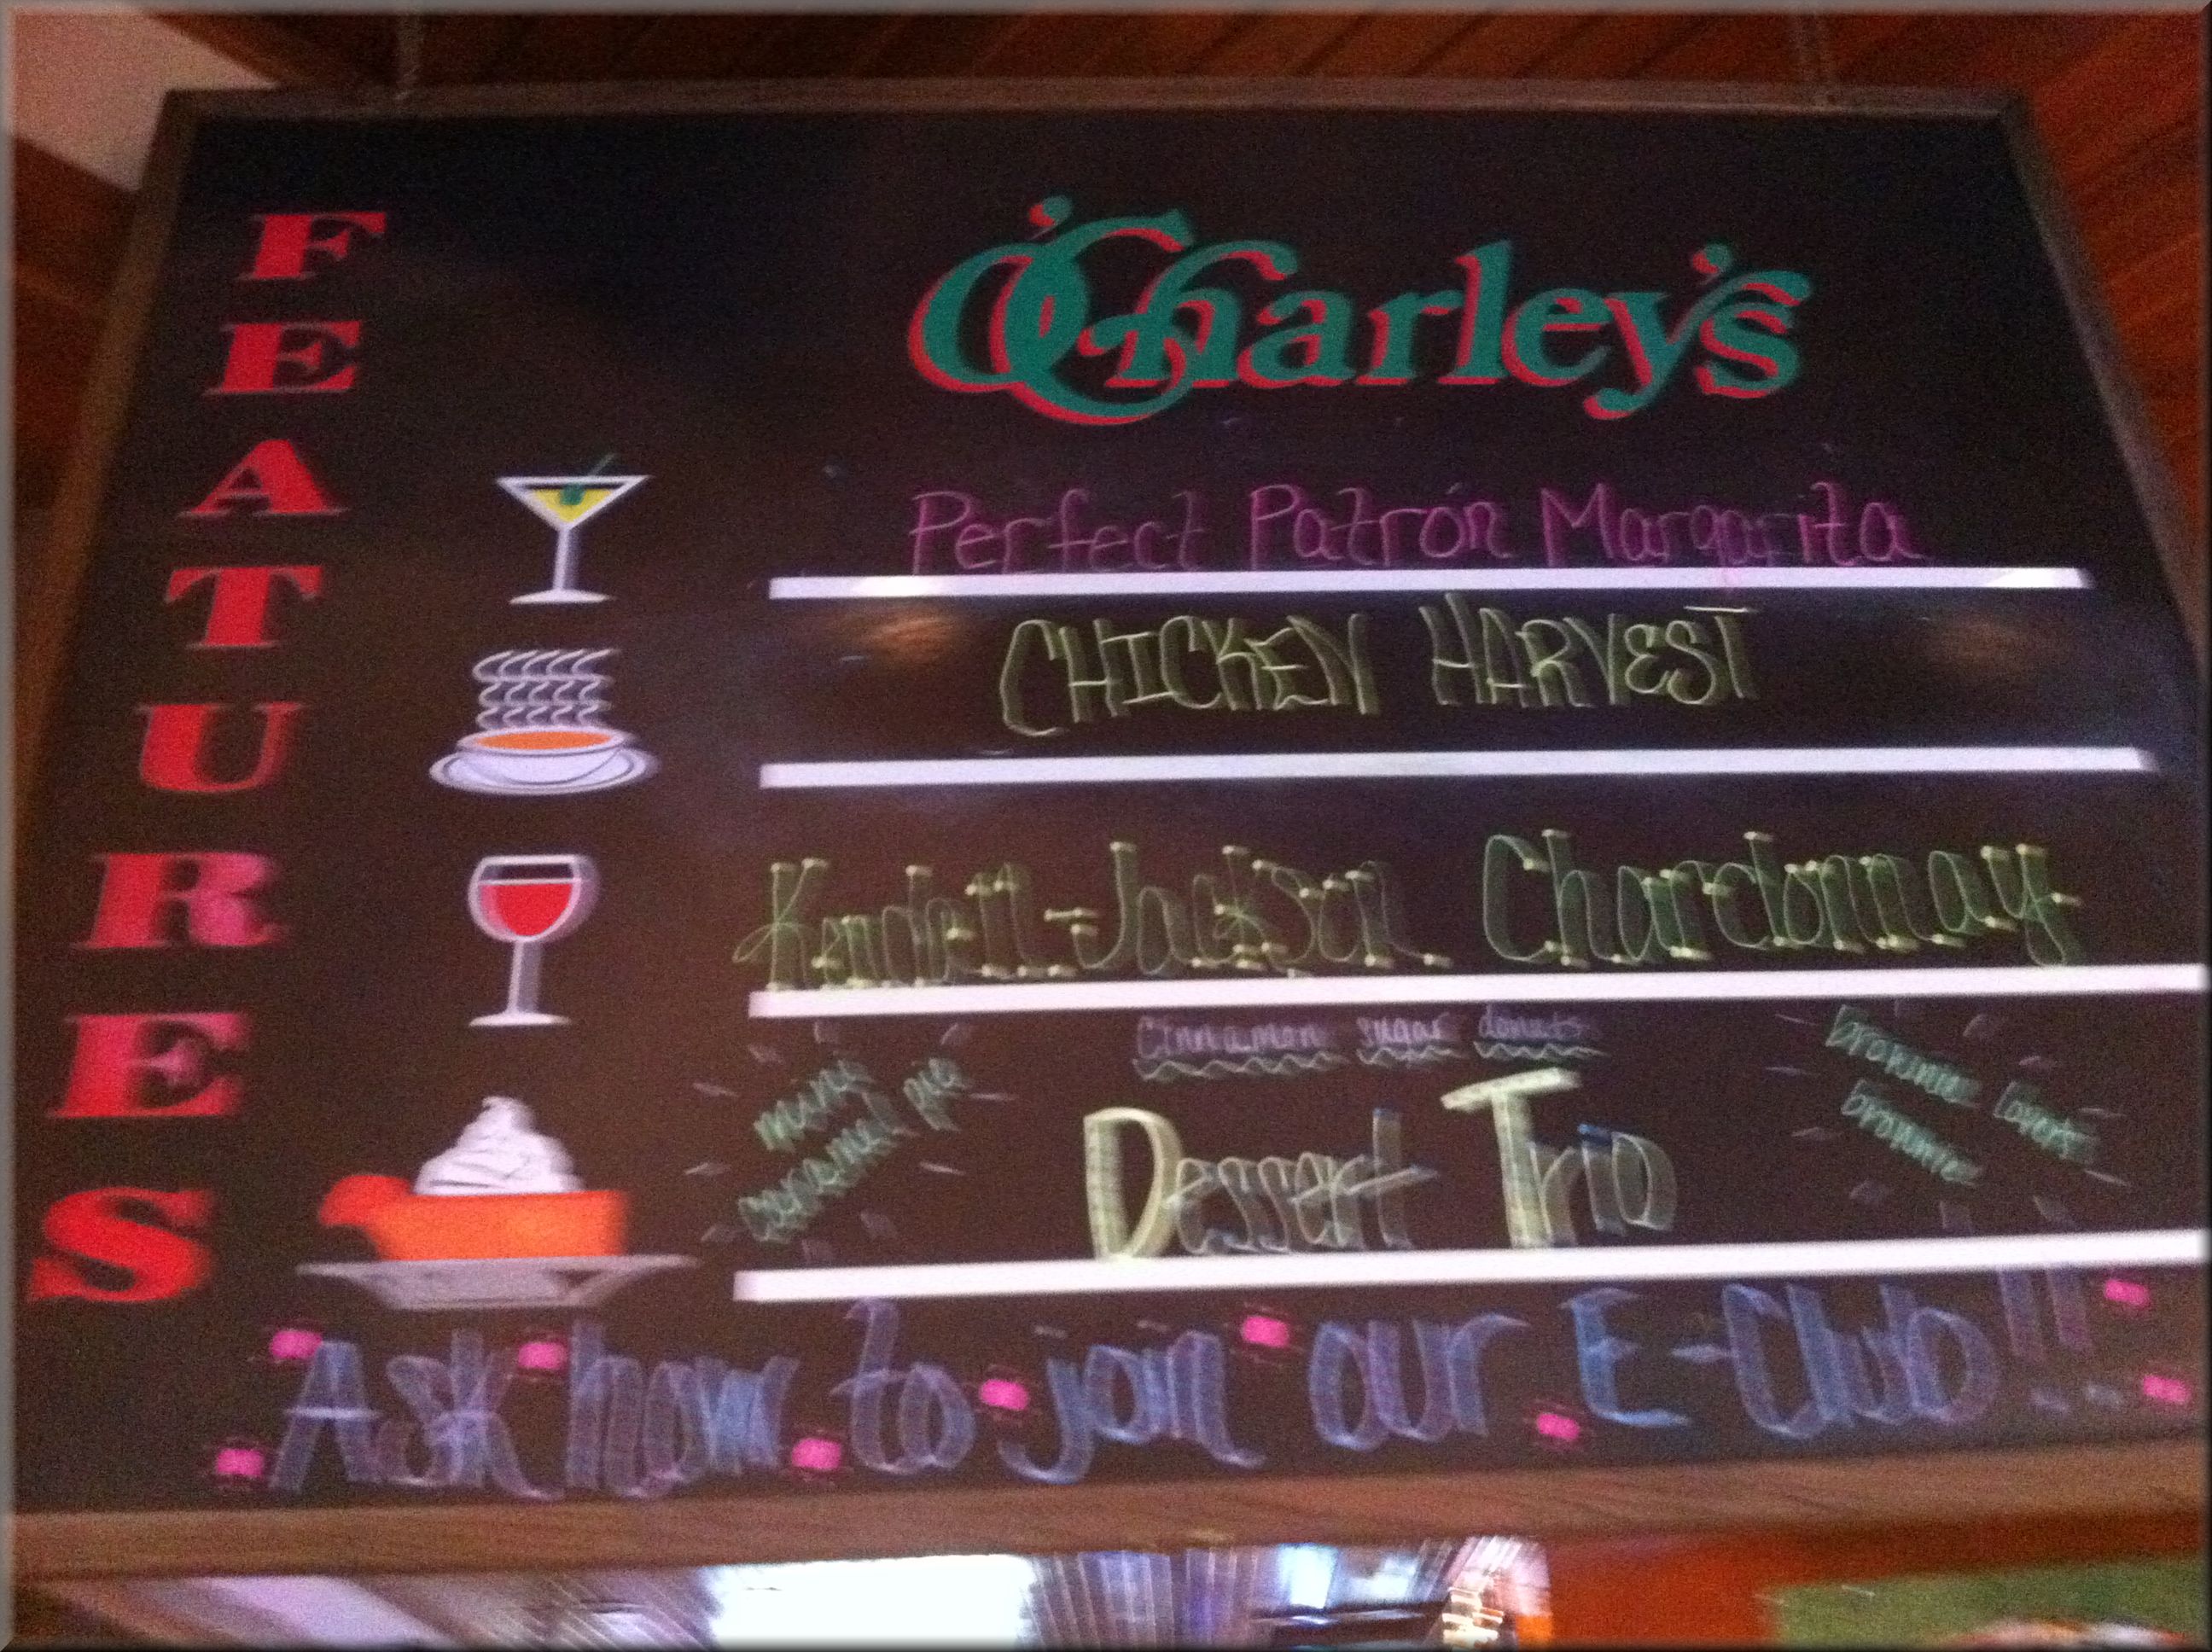 FEATURES
O'Charley's
Perfect Patrón Margarita
CHICKEN HARVEST
Kendell-Jackson Chardonnay
cinnamon sugar donuts
mini
caramel pie
brownie lovers
brownie
Dessert Trio
Ask how to join our E-Club!!